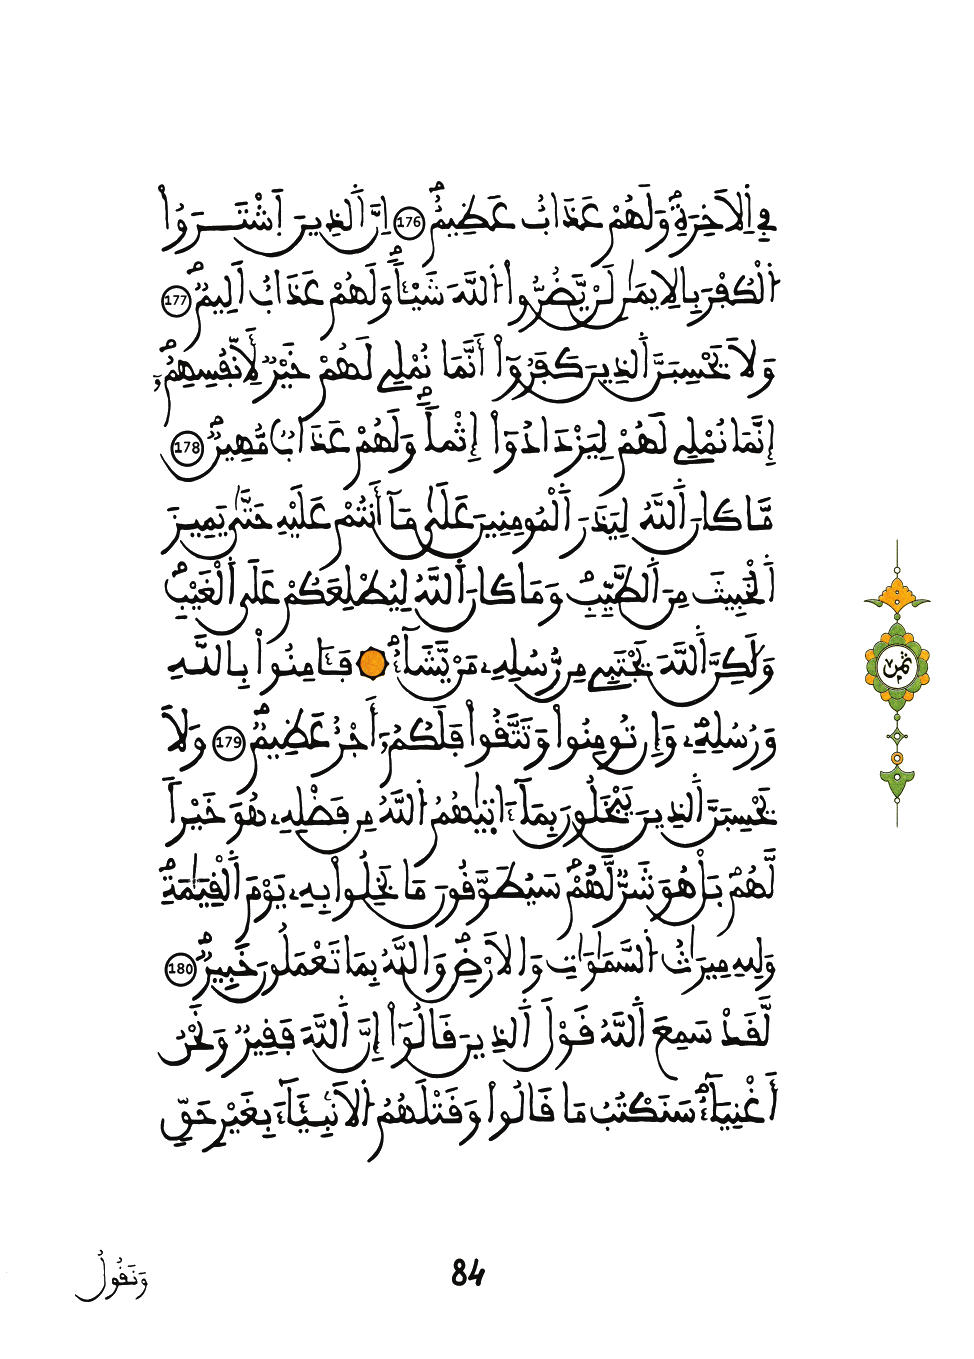 فِي اِ۬لَاخِرَةِۖ وَلَهُمْ عَذَابٌ عَظِيمٌۖ 176 اِنَّ اَ۬لذِينَ اَ۪شْتَرَوُاْ
اُ۬لْكُفْرَ بِالِايمَٰنِ لَنْ يَّضُرُّواْ اُ۬للَّهَ شَيْـٔاٗۖ وَلَهُمْ عَذَابٌ اَلِيمٌۖ 177
وَلَا تَحْسِبَنَّ اَ۬لذِينَ كَفَرُوٓاْ أَنَّمَا نُمْلِے لَهُمْ خَيْرٞ لِّأَنفُسِهِمُۥٓۖ
إِنَّمَا نُمْلِے لَهُمْ لِيَزْدَادُوٓاْ إِثْماٗۖ وَلَهُمْ عَذَابٞ مُّهِينٞۖ 178
مَّا كَانَ اَ۬للَّهُ لِيَذَرَ اَ۬لْمُومِنِينَ عَلَىٰ مَآ أَنتُمْ عَلَيْهِ حَتَّىٰ يَمِيزَ
اَ۬لْخَبِيثَ مِنَ اَ۬لطَّيِّبِۖ وَمَا كَانَ اَ۬للَّهُ لِيُطْلِعَكُمْ عَلَى اَ۬لْغَيْبِۖ
وَلَٰكِنَّ اَ۬للَّهَ يَجْتَبِے مِن رُّسُلِهِۦ مَنْ يَّشَآءُۖ فَـَٔامِنُواْ بِاللَّهِ
وَرُسُلِهِۦۖ وَإِن تُومِنُواْ وَتَتَّقُواْ فَلَكُمُۥٓ أَجْرٌ عَظِيمٞۖ 179 وَلَا
تَحْسِبَنَّ اَ۬لذِينَ يَبْخَلُونَ بِمَآ ءَاتَيٰهُمُ اُ۬للَّهُ مِن فَضْلِهِۦ هُوَ خَيْراٗ
لَّهُمۖ بَلْ هُوَ شَرّٞ لَّهُمْۖ سَيُطَوَّقُونَ مَا بَخِلُواْ بِهِۦ يَوْمَ اَ۬لْقِيَٰمَةِۖ
وَلِلهِ مِيرَٰثُ اُ۬لسَّمَٰوَٰتِ وَالَارْضِۖ وَاللَّهُ بِمَا تَعْمَلُونَ خَبِيرٞۖ 180
لَّقَدْ سَمِعَ اَ۬للَّهُ قَوْلَ اَ۬لذِينَ قَالُوٓاْ إِنَّ اَ۬للَّهَ فَقِيرٞ وَنَحْنُ
أَغْنِيَآءُۖ سَنَكْتُبُ مَا قَالُواْ وَقَتْلَهُمُ اُ۬لَانۢبِـَٔآءَ بِغَيْرِ حَقّٖ
ثمن
84
وَنَقُولُ